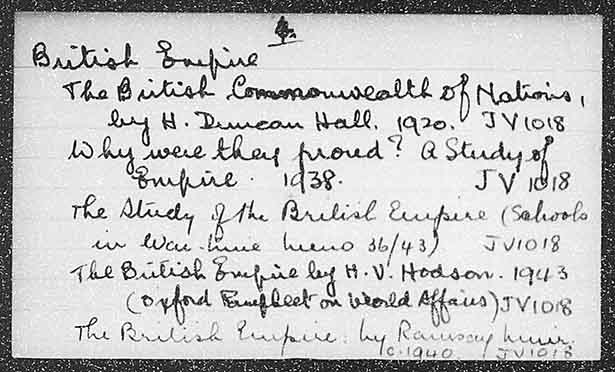 British Empire
The British Commonwealth of Nations,
by H. Duncan Hall. 1920. JV1018
Why were they proud? A Study of
Empire. 1938. JV1018
The Study of the British Empire (Schools
in War-time memo 36/43) JV1018
The British Empire by H. V. Hodson. 1943
(Oxford Pamphlet on World Affairs) JV1018
The British Empire. by Ramsay Muir.
c.1940 JV1018